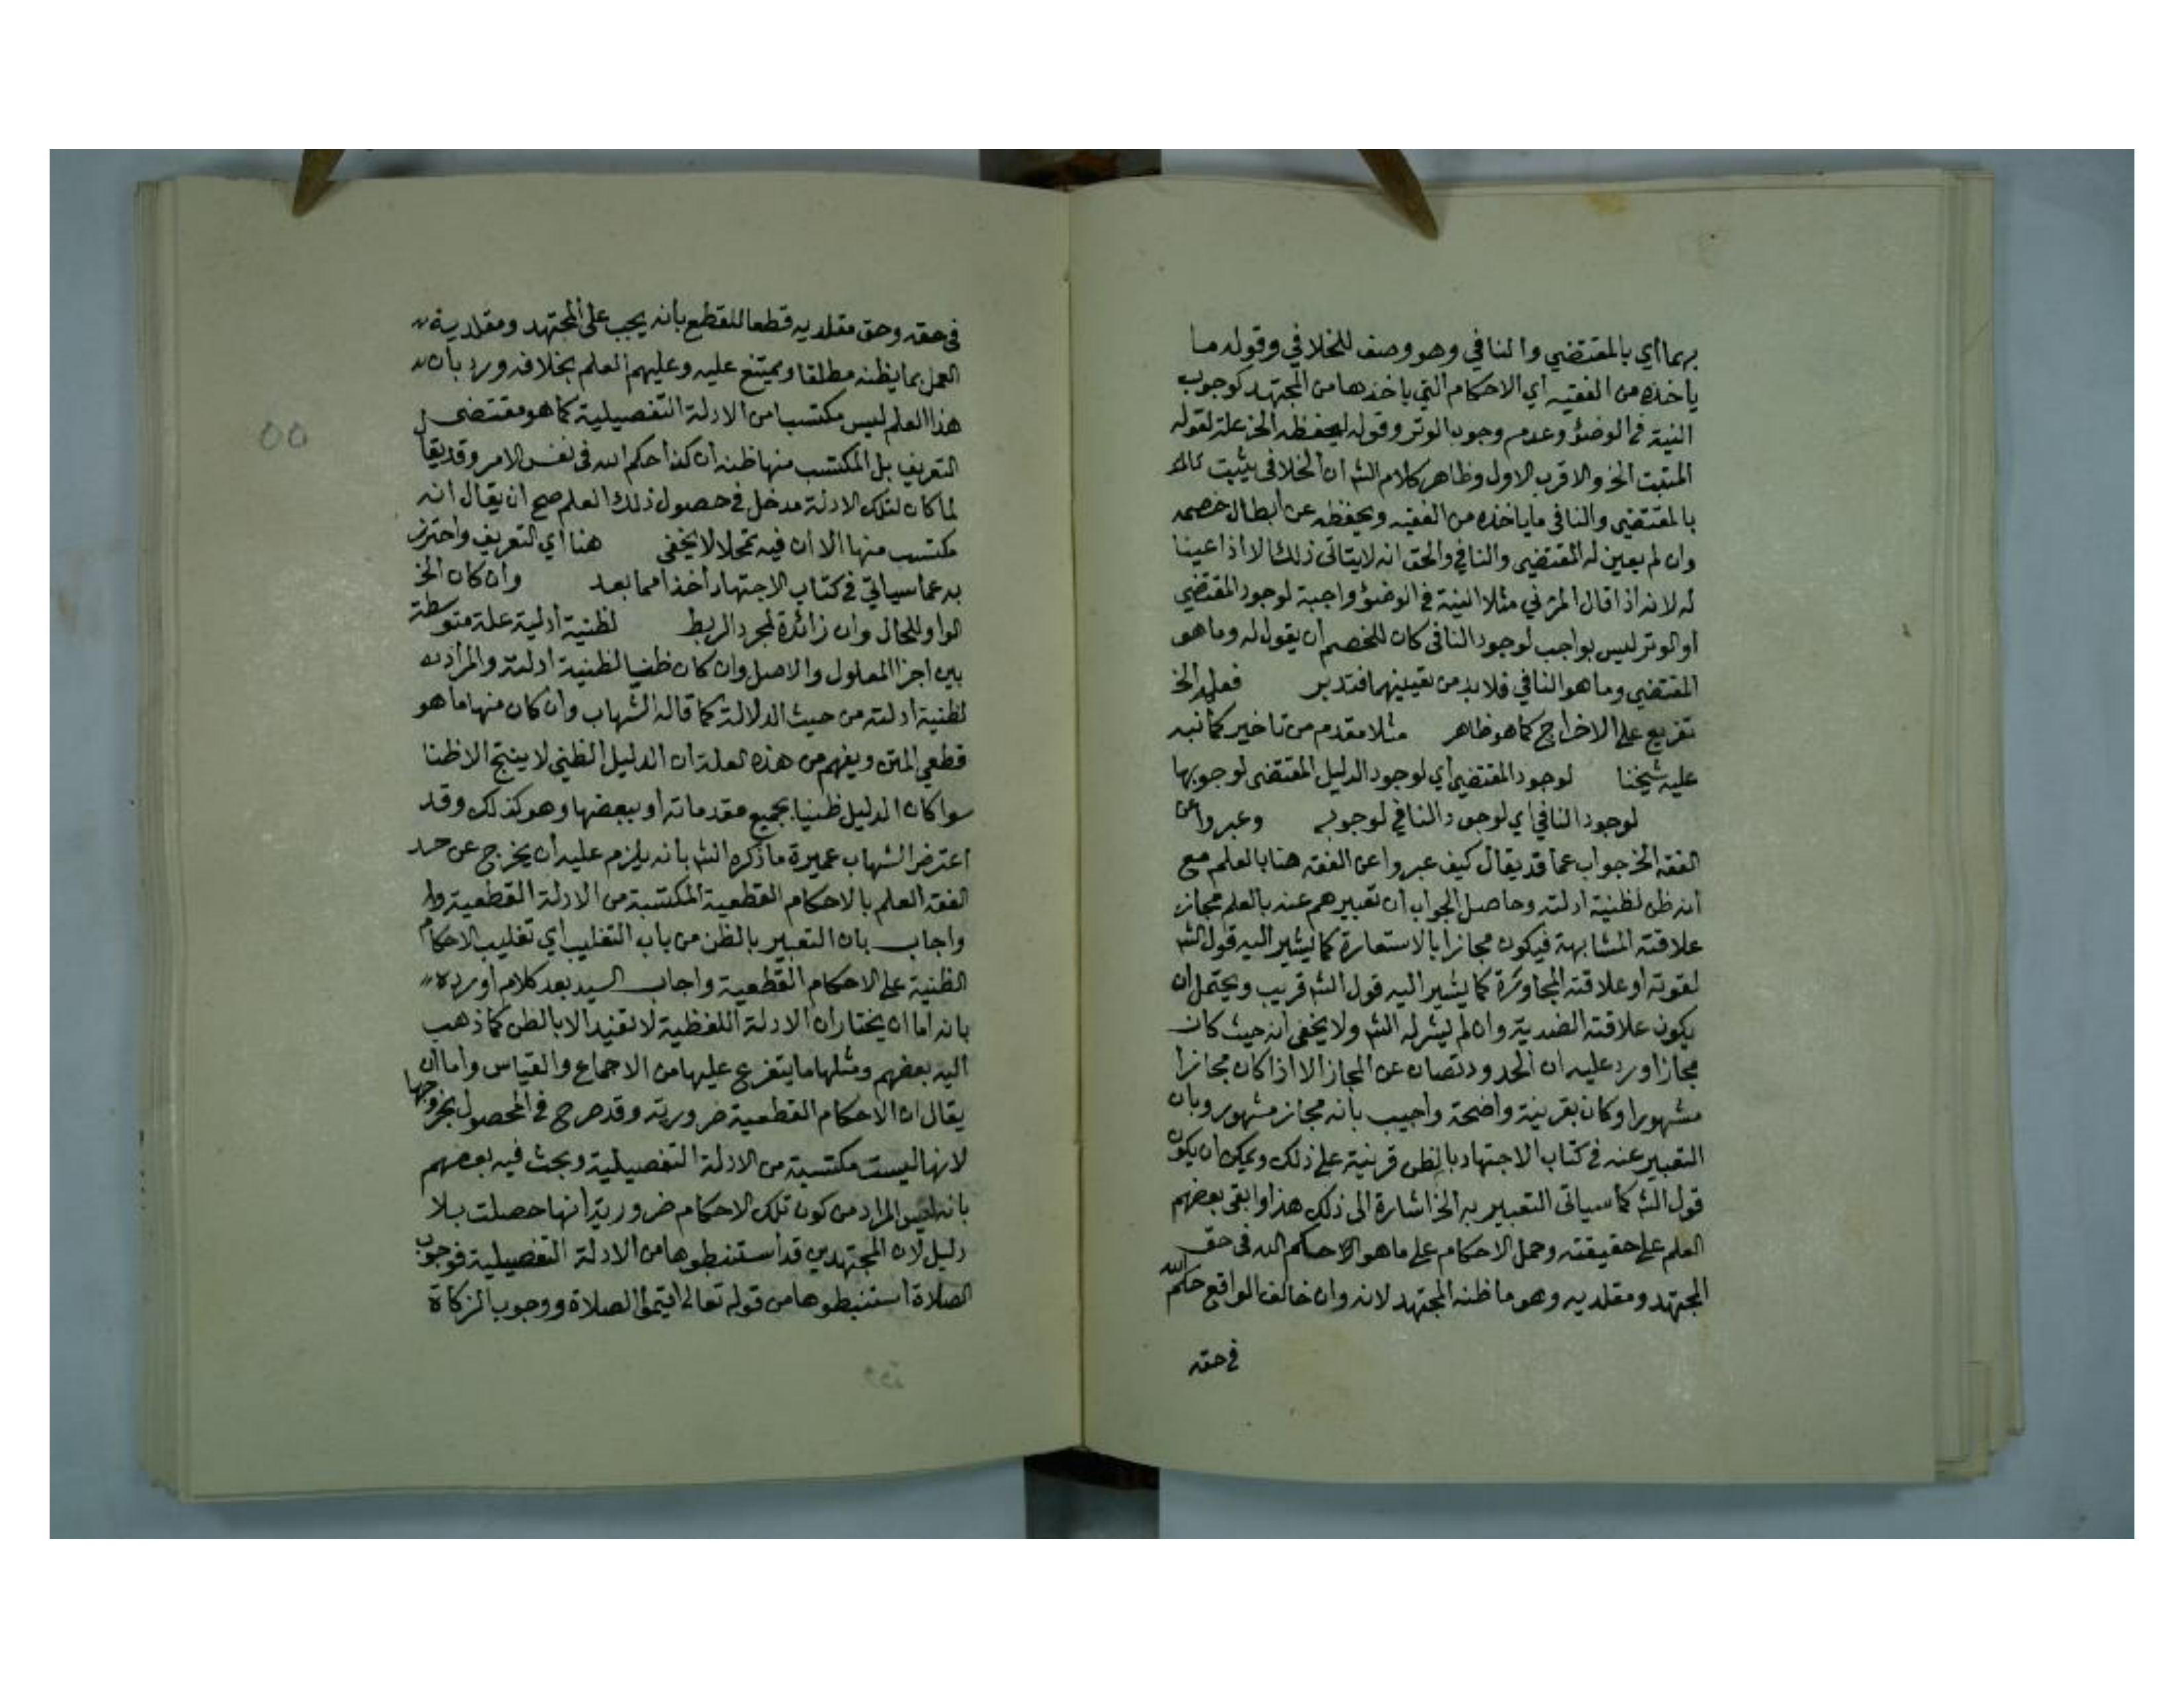 بهما أي بالمقتضي والنافي وهو وصف للخلافي وقوله ما
ياخذه من الفقيه أي الاحكام التي ياخذها من المجتهد كوجوب
النية في الوضؤ وعدم وجوب الوتر وقوله ليحفظه الخ علة لقوله
المثبت الخ والاقرب الاول وظاهر كلام الشه ان الخلافي يثبت
بالمقتضي والنافي ما ياخذه من الفقيه ويحفظه عن ابطال خصمه
وان لم يعين له المقتضي والنافي والحق انه لا يتاتى ذلك الا اذا عينا
له لانه اذا قال المزني مثلا النية في الوضؤ واجبة لوجود المقتضي
او الوتر ليس بواجب لوجود النافي كان للخصم أن يقول له وما هو
المقتضي وما هو النافي فلابد من تعيينهما فتدبر فعلم الخ
تفريع على الاخراج كما هو ظاهر مثلا مقدم من تاخير كما نبه
عليه شيخنا لوجود المقتضي أي لوجود الدليل المقتضي لوجوبها
لوجود النافي اي لوجود النافي لوجوبه وعبروا عن
الفقه الخ جواب عما قد يقال كيف عبروا عن الفقه هنا بالعلم مع
أنه ظن لظنية ادلته وحاصل الجواب أن تعبيرهم عنه بالعلم مجاز
علاقته المشابهة فيكون مجازا بالاستعارة كما يشير اليه قول الشه
لقوته او علاقته المجاورة كما يشير اليه قول الشه قريب ويحتمل ان
يكون علاقته الضدية وان لم يشر له الشه ولا يخفى انه حيث كان
مجازا ورد عليه ان الحدود تصان عن المجاز الا اذا كان مجازا
مشهورا وكان بقرينة واضحة واجيب بأنه مجاز مشهور وبان
التعبير عنه في كتاب الاجتهاد بالظن قرينة على ذلك ويمكن ان يكون
قول الشه كما سياتى التعبير به الخ اشارة الى ذلك هذا وابقى بعضهم
العلم على حقيقته وحمل الاحكام على ما هو حكم الله في حق
المجتهد ومقلديه وهو ما ظنه المجتهد لانه وان خالف الواقع حكم الله
في حقه
في حقه وحق مقلديه قطعا للقطع بأنه يجب على المجتهد ومقلديه
العمل بما يظنه مطلقا ويمتنع عليه وعليهم العلم بخلافه ورد بأن
هذا العلم ليس مكتسبا من الادلة التفصيلية كما هو مقتضى
التعريف بل المكتسب منها ظنه أن كذا حكم الله في نفس الامر وقد يقال
لما كان لتلك الادلة مدخل في حصول ذلك العلم صح ان يقال انه
مكتسب منها الا أن فيه تمحلا لا يخفى هنا أي التعريف واحترز
به عما سياتي في كتاب الاجتهاد أخذا مما بعد وان كان الخ
الواو للحال وان زائدة لمجرد الربط لظنية أدلية علة متوسطة
بين اجزا المعلول والاصل وان كان ظنيا لظنية ادلته والمراد
لظنية ادلته من حيث الدلالة كما قاله الشهاب وان كان منها ما هو
قطعي المتن ويفهم من هذه العلة أن الدليل الظني لا ينتج الا ظنا
سوا كان الدليل ظنيا بجميع مقدماته او ببعضها وهو كذلك وقد
اعترض الشهاب عميرة ما ذكره الشه بأنه يلزم عليه أن يخرج عن حد
الفقه العلم بالاحكام القطعية المكتسبة من الادلة القطعية
واجاب بان التعبير بالظن من باب التغليب أي تغليب الاحكام
الظنية على الاحكام القطعية واجاب السيد بعد كلام أورده
بانه اما ان يختار ان الادلة اللفظية لا تفيد الا بالظن كما ذهب
اليه بعضهم ومثلها ما يتفرع عليها من الاجماع والقياس واما أن
يقال ان الاحكام القطعية ضرورية وقد صرح في المحصول بخروجها
لانها ليست مكتسبة من الادلة التفصيلية وبحث فيه بعضهم
بانه ليس المراد من كون تلك الاحكام ضرورية أنها حصلت بلا
دليل لان المجتهدين قد استنبطوها من الادلة التفصيلية فوجوب
الصلاة استنبطوها من قوله تعالى اقيموا الصلاة ووجوب الزكاة